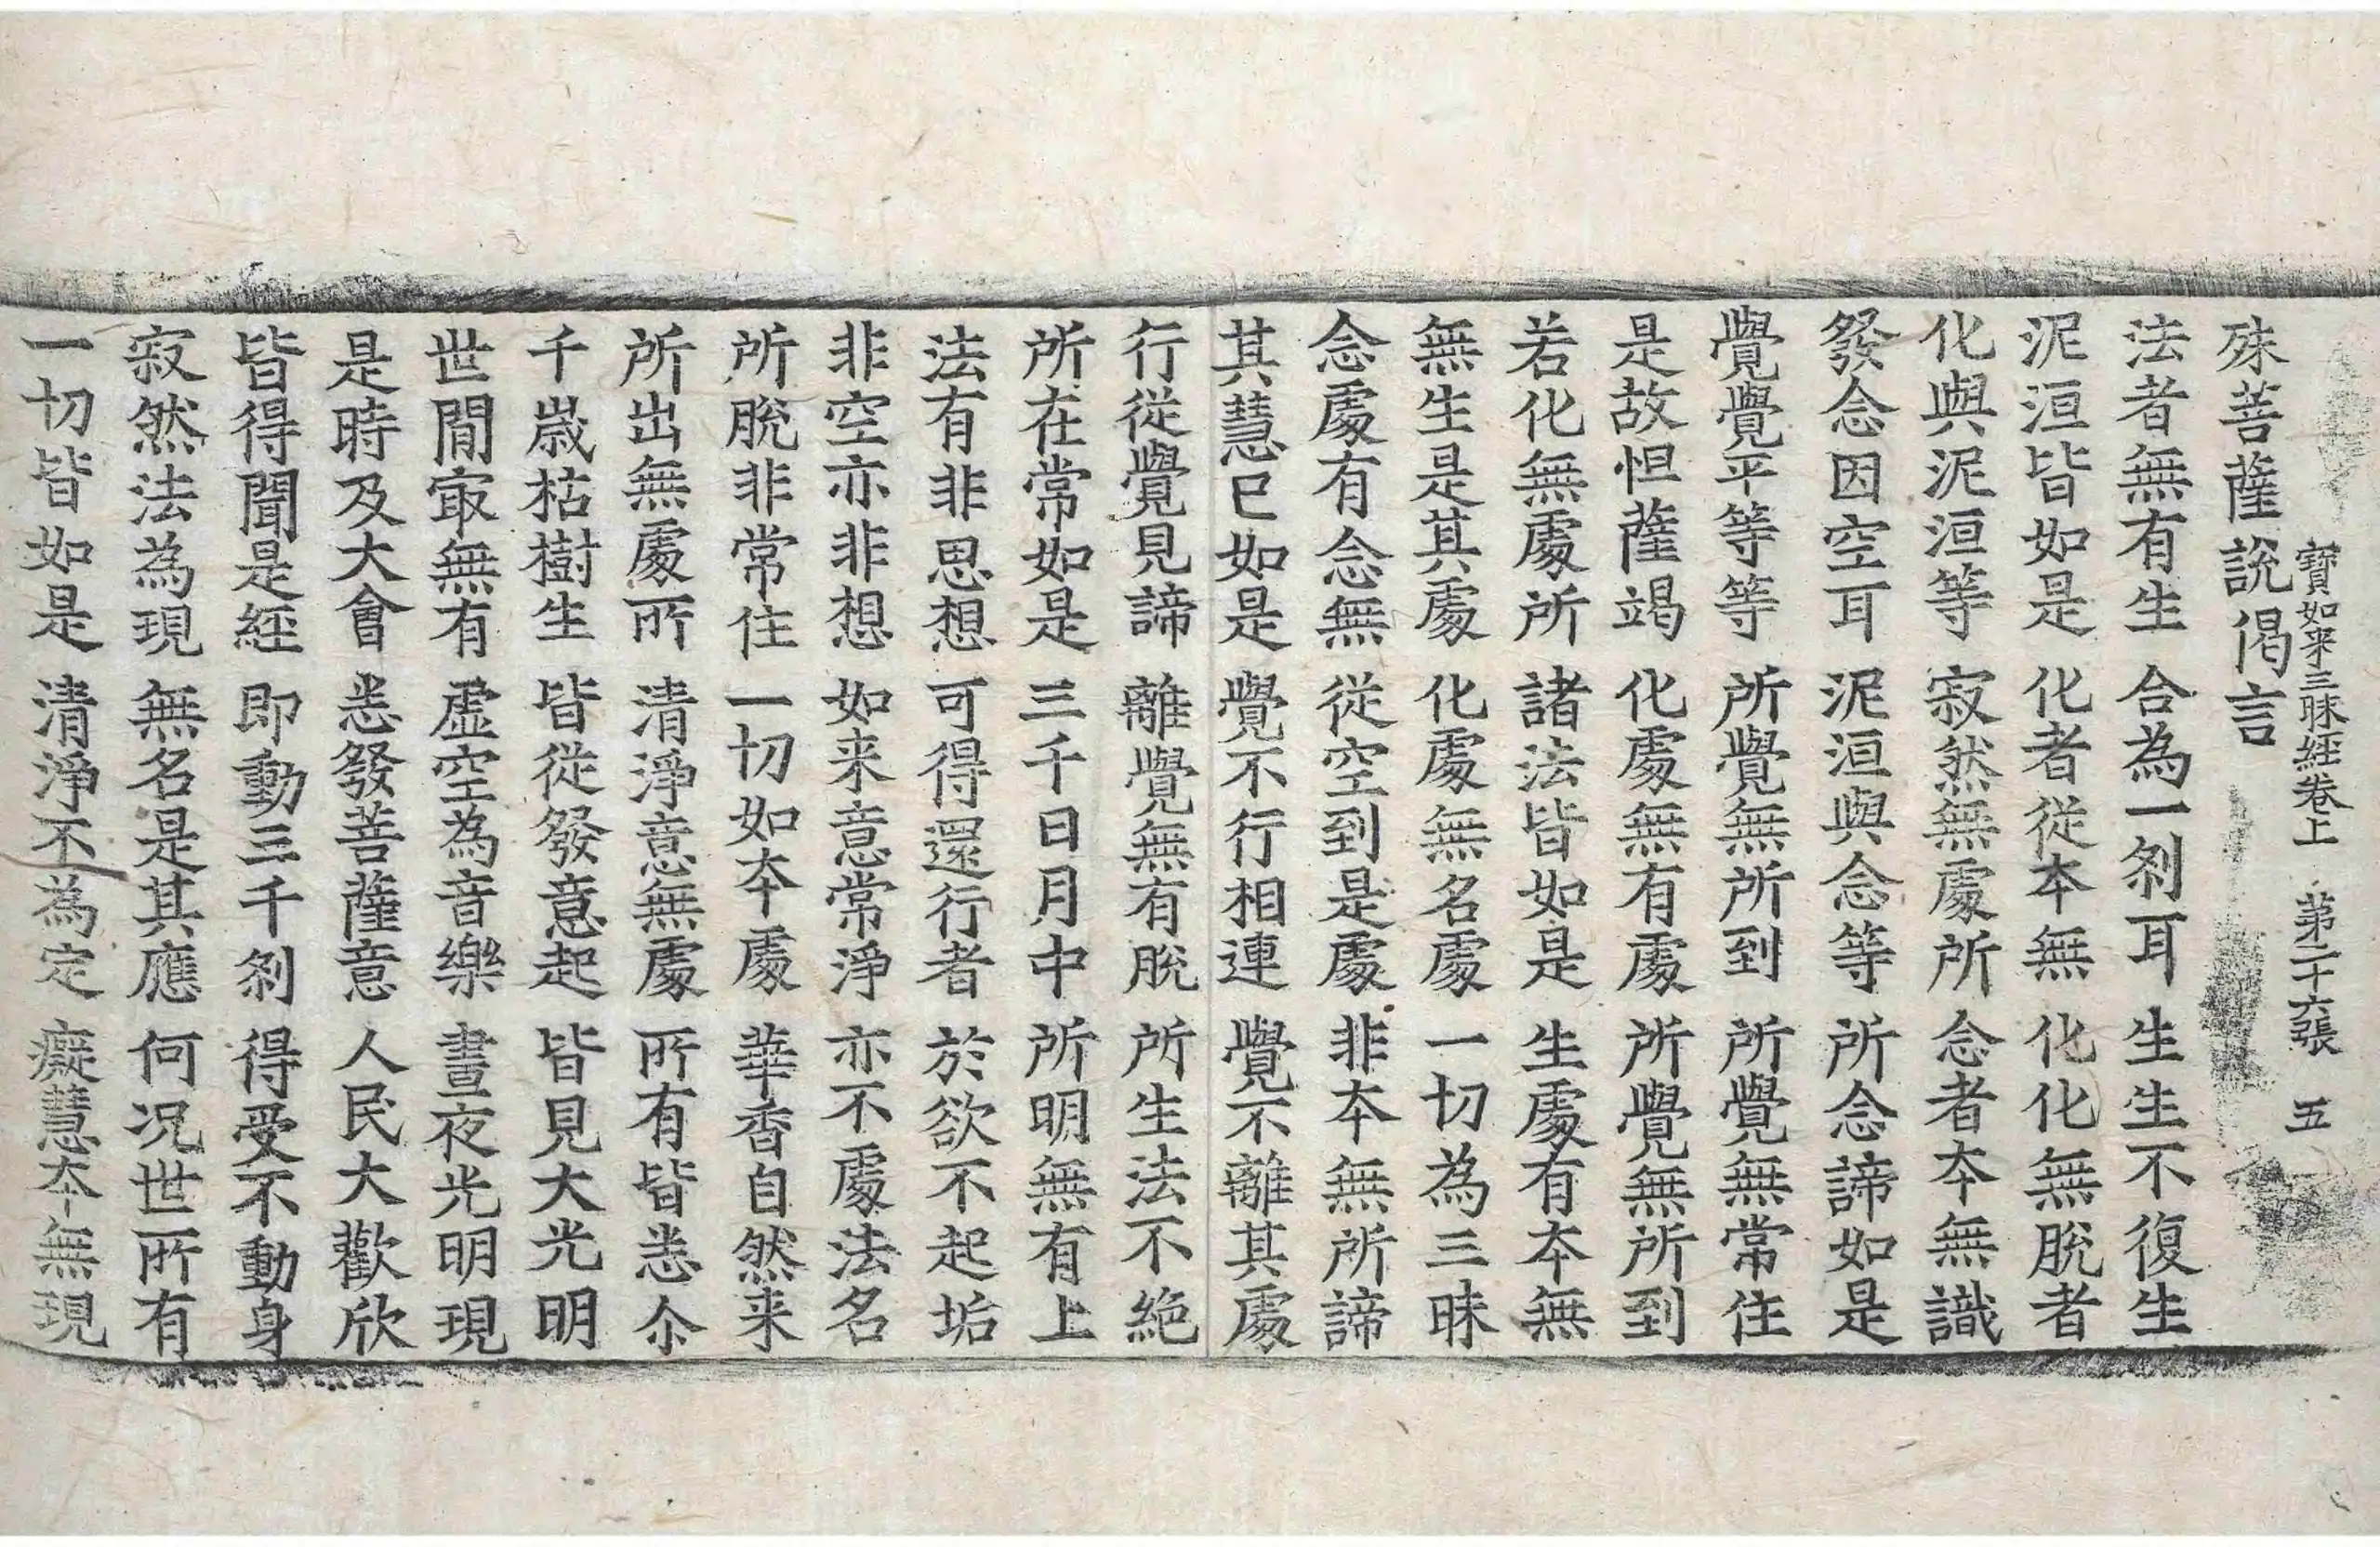 寶如来三昧經卷上 第二十六張 五
殊菩薩說偈言
法者無有生 合為一刹耳 生生不復生
泥洹皆如是 化者從夲無 化化無脫者
化與泥洹等 寂然無處所 念者夲無識
發念因空耳 泥洹與念等 所念諦如是
覺覺平等等 所覺無所到 所覺無常住
是故怛薩竭 化處無有處 所覺無所到
若化無處所 諸法皆如是 生處有夲無
無生是其處 化處無名處 一切為三昧
念處有念無 從空到是處 非夲無所諦
其慧已如是 覺不行相連 覺不離其處
行從覺見諦 離覺無有脫 所生法不絕
所在常如是 三千日月中 所明無有上
法有非思想 可得還行者 於欲不起垢
非空亦非想 如来意常淨 亦不處法名
所脫非常住 一切如夲處 華香自然来
所出無處所 清淨意無處 所有皆悉尒
千歲枯樹生 皆從發意起 皆見大光明
世閒㝡無有 虛空為音樂 晝夜光明現
是時及大會 悉發菩薩意 人民大歡欣
皆得聞是經 即動三千刹 得受不動身
寂然法為現 無名是其應 何况世所有
一切皆如是 清淨不為定 癡慧夲無現